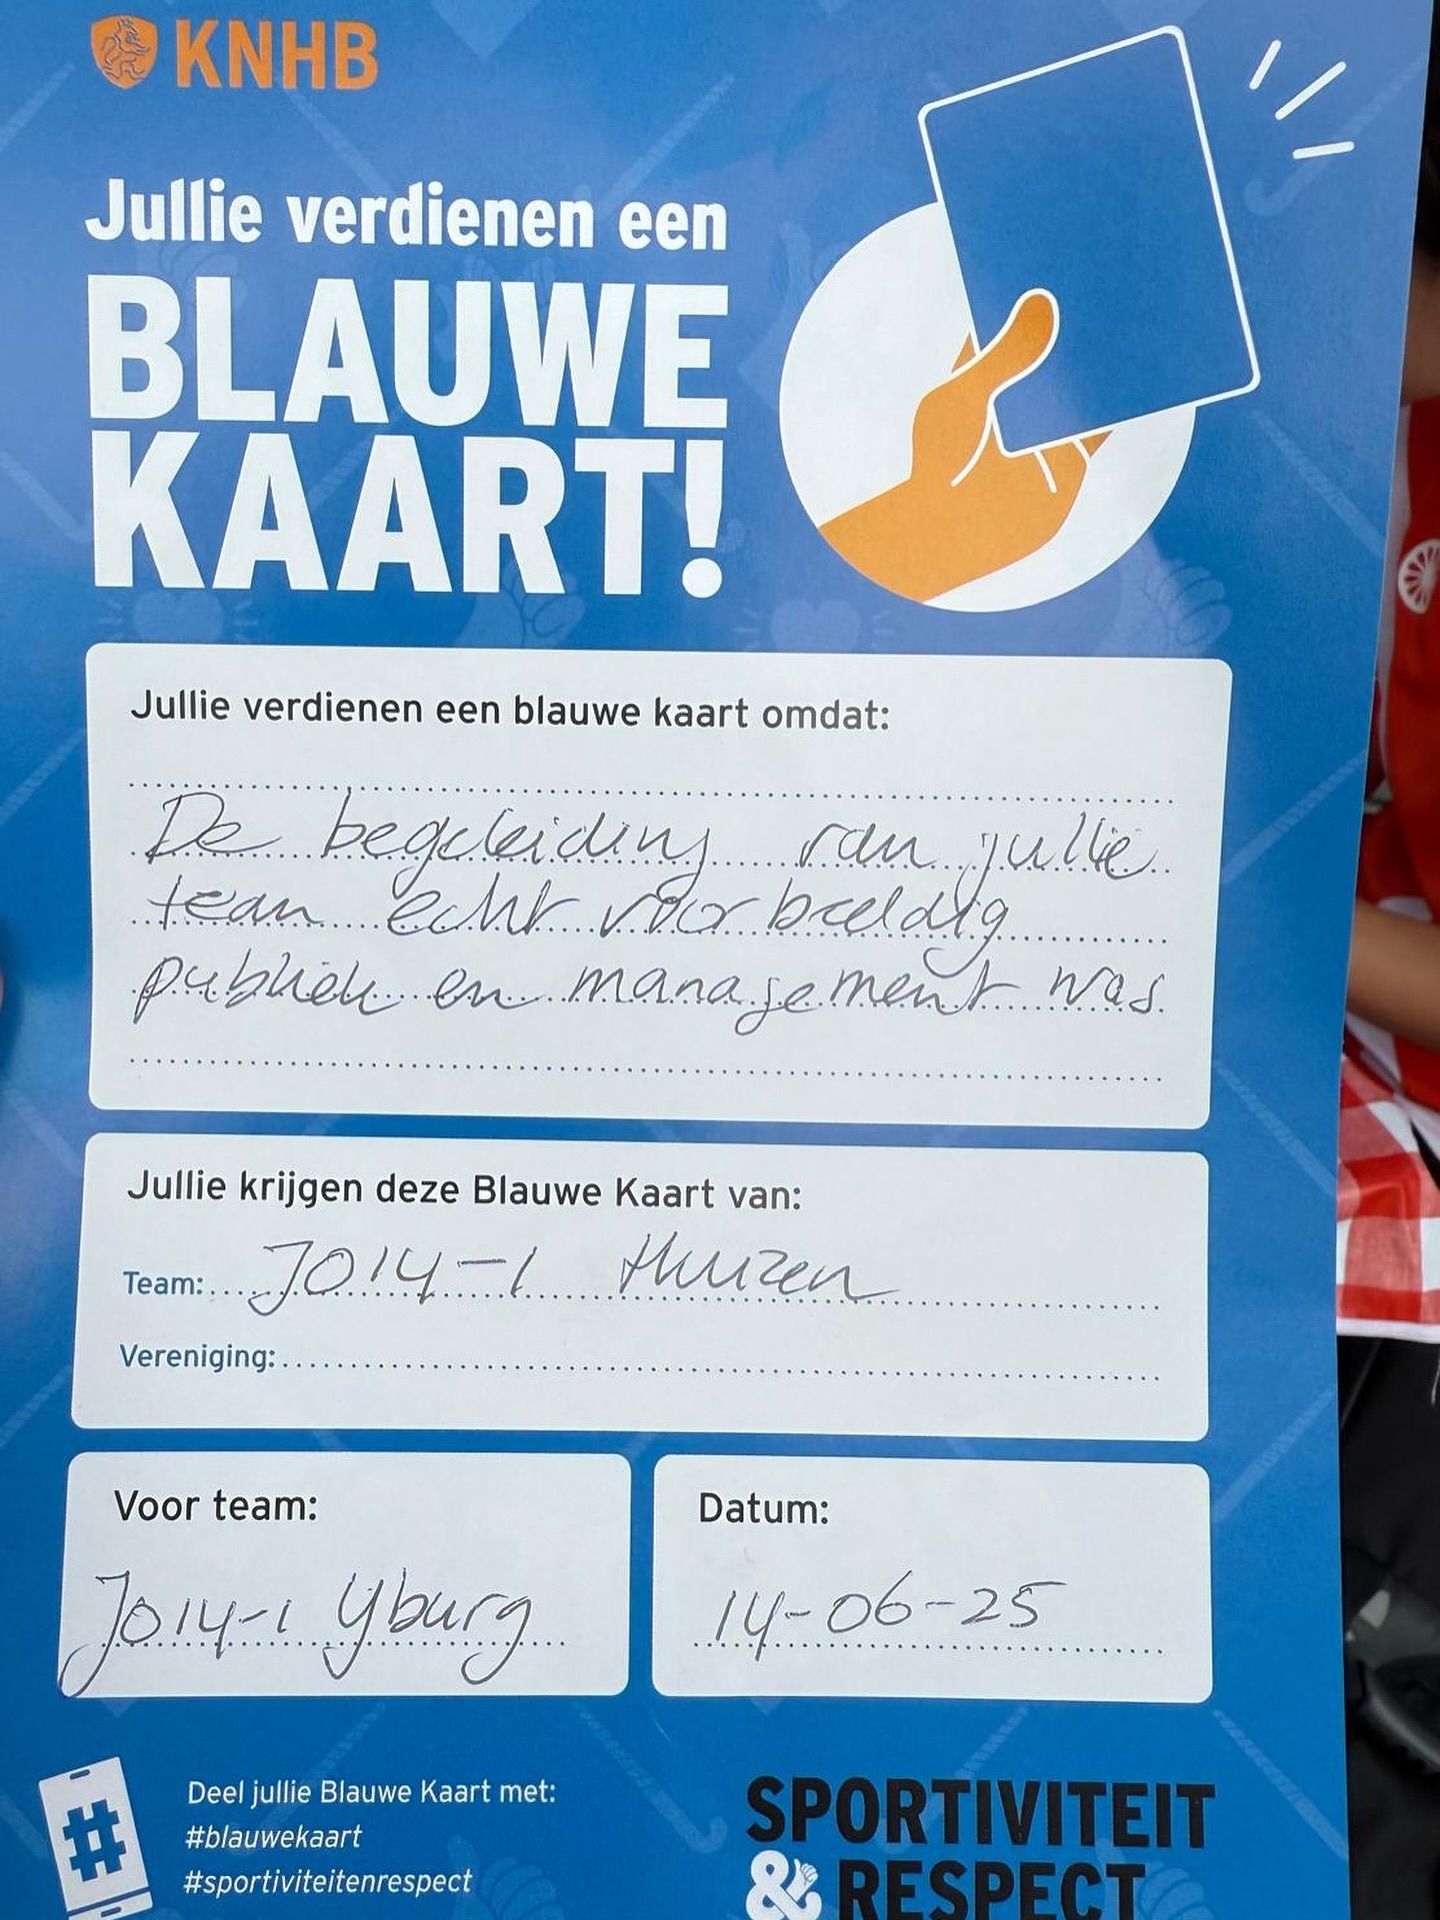 KNHB
Jullie verdienen een
BLAUWE
KAART!
Jullie verdienen een blauwe kaart omdat:
De begeleiding van jullie
team echt voorbeeldig
publiek en management was
Jullie krijgen deze Blauwe Kaart van:
Team: JO14-1 Huizen
Vereniging:
Voor team:
JO14-1 IJburg
Datum:
14-06-25
Deel jullie Blauwe Kaart met:
#blauwekaart
#sportiviteitenrespect
#
SPORTIVITEIT
& RESPECT